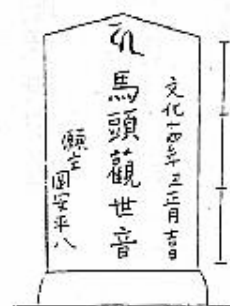 文化十四年丑正月吉日
馬頭觀世音
願主
安平八